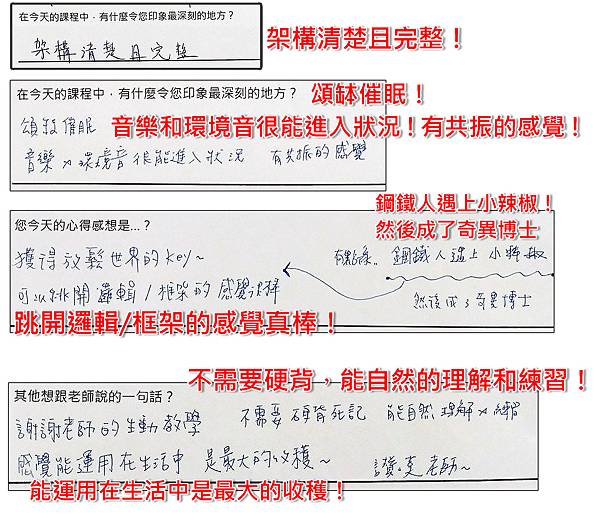 在今天的課程中，有什麼令您印象最深刻的地方？
架構清楚且完整
架構清楚且完整！
在今天的課程中，有什麼令您印象最深刻的地方？
頌缽催眠！
頌缽催眠
音樂和環境音很能進入狀況！有共振的感覺！
音樂 環境音很能進入狀況 有共振的感覺
鋼鐵人遇上小辣椒！
然後成了奇異博士
您今天的心得感想是...？
獲得放鬆世界的key~
有點像.. 鋼鐵人遇上小辣椒
可以跳開邏輯/框架的感覺很棒
然後成了奇異博士
跳開邏輯/框架的感覺真棒！
不需要硬背，能自然的理解和練習！
其他想跟老師說的一句話？
謝謝老師的生動教學 不需要硬背死記 能自然理解 練習
感覺能運用在生活中 是最大的收穫~ 讚 老師~
能運用在生活中是最大的收穫！